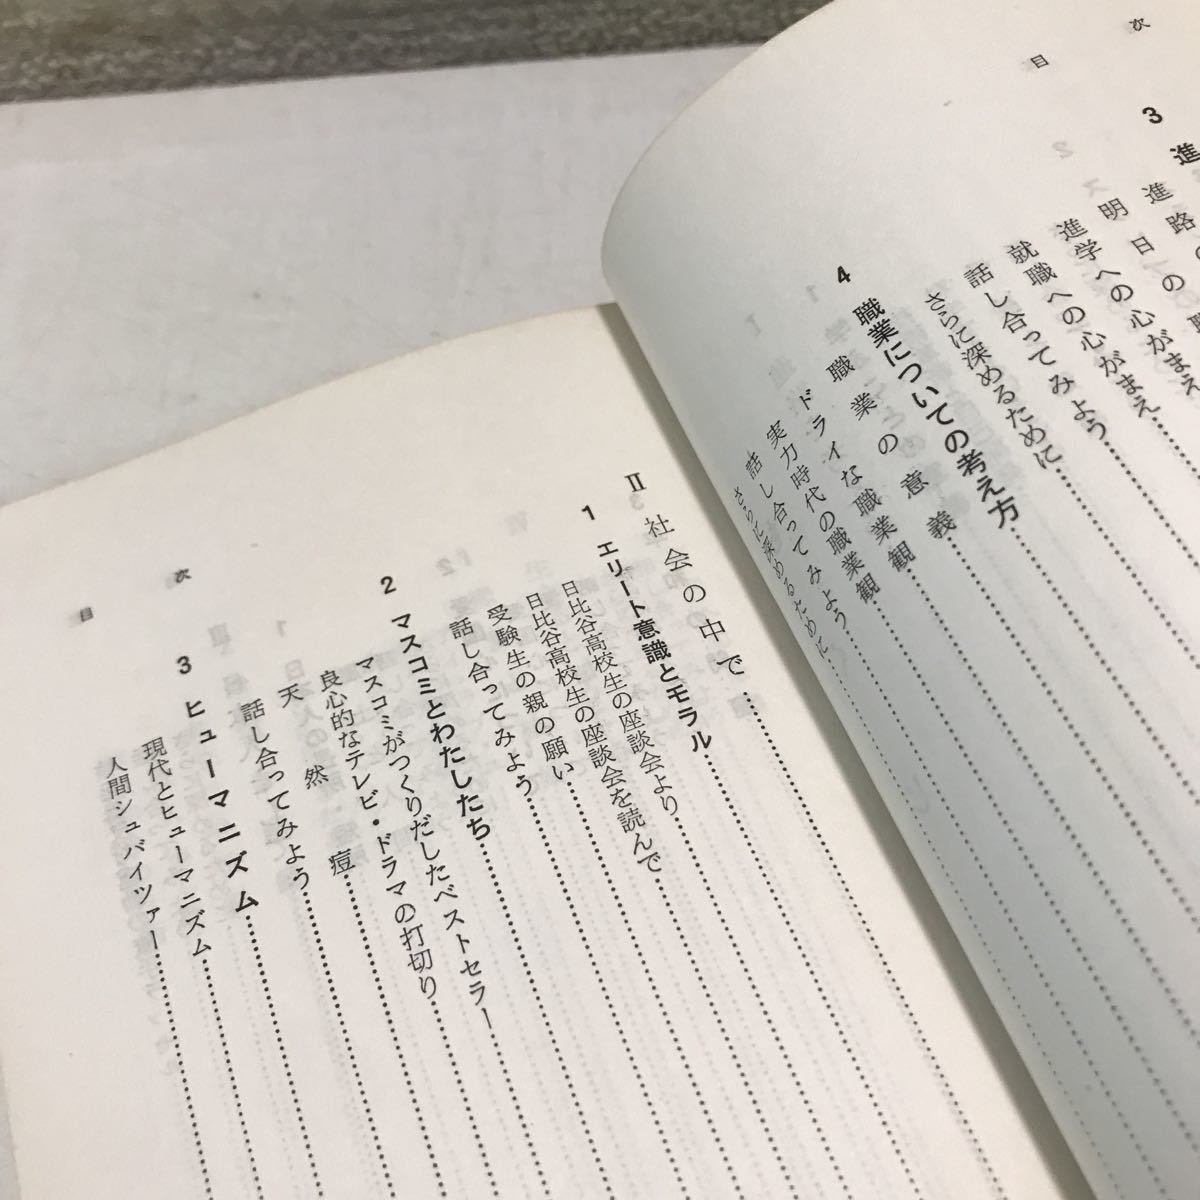 目次
3 進
進路の
明日の職
進学への心がまえ
就職への心がまえ
話し合ってみよう
さらに深めるために
4 職業についての考え方
職業の意義
ドライな職業観
実力時代の職業観
話し合ってみよう
さらに深めるために
II 社会の中で
1 エリート意識とモラル
日比谷高校生の座談会より
日比谷高校生の座談会を読んで
受験生の親の願い
話し合ってみよう
2 マスコミとわたしたち
マスコミがつくりだしたベストセラー
良心的なテレビ・ドラマの打切り
天然痘
話し合ってみよう
3 ヒューマニズム
現代とヒューマニズム
人間シュバイツァー
目次